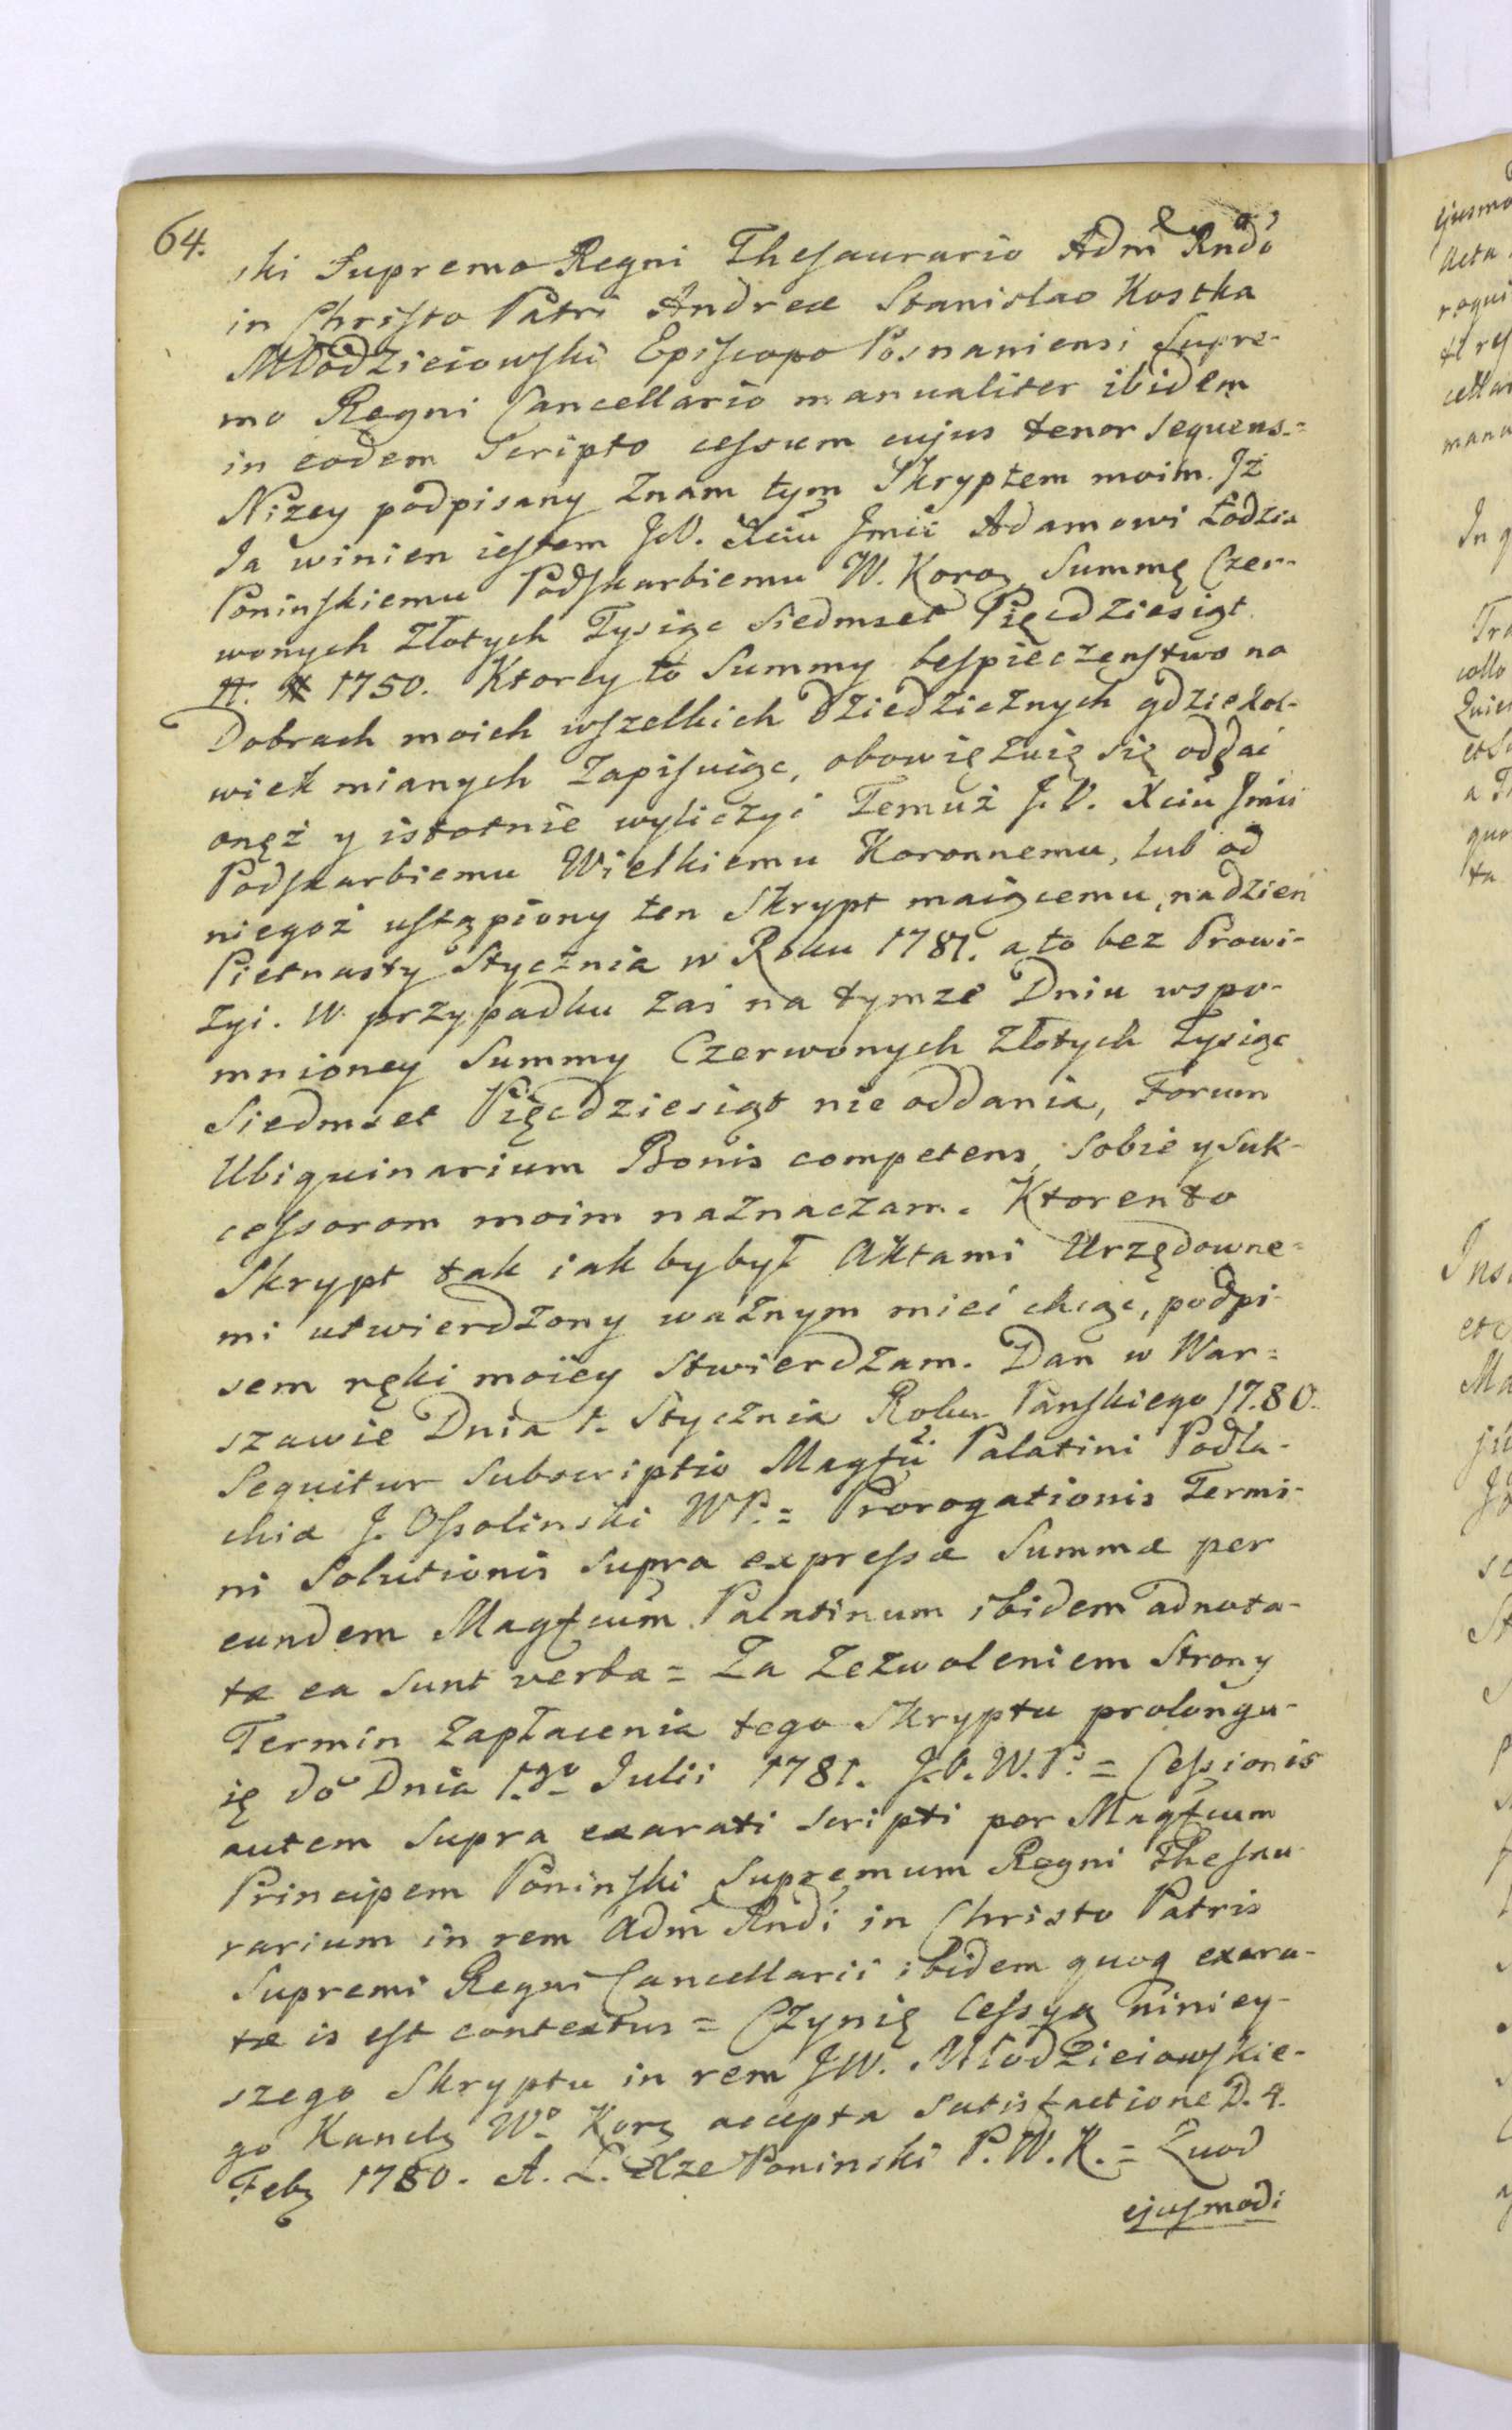 64.
ski Supremo Regni Thesaurario Adm Rndo
in Christo Patri Andreæ Stanislao Kostka
Młodzieiowski Episcopo Posnaniensi Supre-
mo Regni Cancellario manualiter ibidem
in eodem Scripto cessum cujus tenor sequens.=
Niżey podpisany Znam tym Skryptem moim. Iż
Ja winien iestem J.O. Xciu Jmci Adamowi Łodzia
Poninskiemu Podskarbiemu W. Koro, Summę Czer-
wonych Złotych Tysiąc Siedmset Pięćdziesiąt
#. # 1750. Ktorey to Summy bespieczenstwo na
Dobrach moich wszelkich dziedzicznych gdziekol-
wiek mianych Zapisuiąc, obowięzuię się oddać
onęż y istotnie wyliczyć Temuż J.O. Xciu Jmci
Podskarbiemu Wielkiemu Koronnemu, lub od
niegoż ustąpiony ten Skrypt maiącemu, na dzień
Pietnasty Stycznia w Roku 1781. a to bez Prowi-
zyi. W przypadku zaś na tymze Dniu wspo-
mnioney Summy Czerwonych Złotych Tysiąc
Siedmset Pięćdziesiąt nie oddania, Forum
Ubiquinarium Bonis competens, Sobie y Suk-
cessorom moim naznaczam. Ktoren to
Skrypt tak iak by był Aktami Urzędowne=
mi utwierdzony ważnym mieć chcąc, podpi-
sem ręki moiey stwierdzam. Dan w War=
szawie Dnia 1. Stycznia Roku Panskiego 1780.
Sequitur Subscriptio Magfci Palatini Podla-
chiæ J. Ossolinski WP.= Prorogationis Termi-
ni Solutionis supra expressæ Summæ per
eundem Magfcum Palatinum ibidem adnota-
tæ ea sunt verba = Za Zezwoleniem Strony
Termin Zapłacenia tego Skryptu prolongu-
ię do Dnia 1.go Julii 1781. J.O.W.P. = Cessionis
autem supra exarati scripti per Magfcum
Principem Poninski Supremum Regni Thesau
rarium in rem Adm Rndi in Christo Patris
Supremi Regni Cancellarii ibidem quoq exara-
tæ is est contextus = Czynię Cessyą niniey-
szego Skryptu in rem JW. Młodzieiowskie-
go Kancl Wo Kor accepta satisfactione D. 4.
Feb 1780. A. Ł. Xze Poninski P.W.K. = Quod
ejusmodi